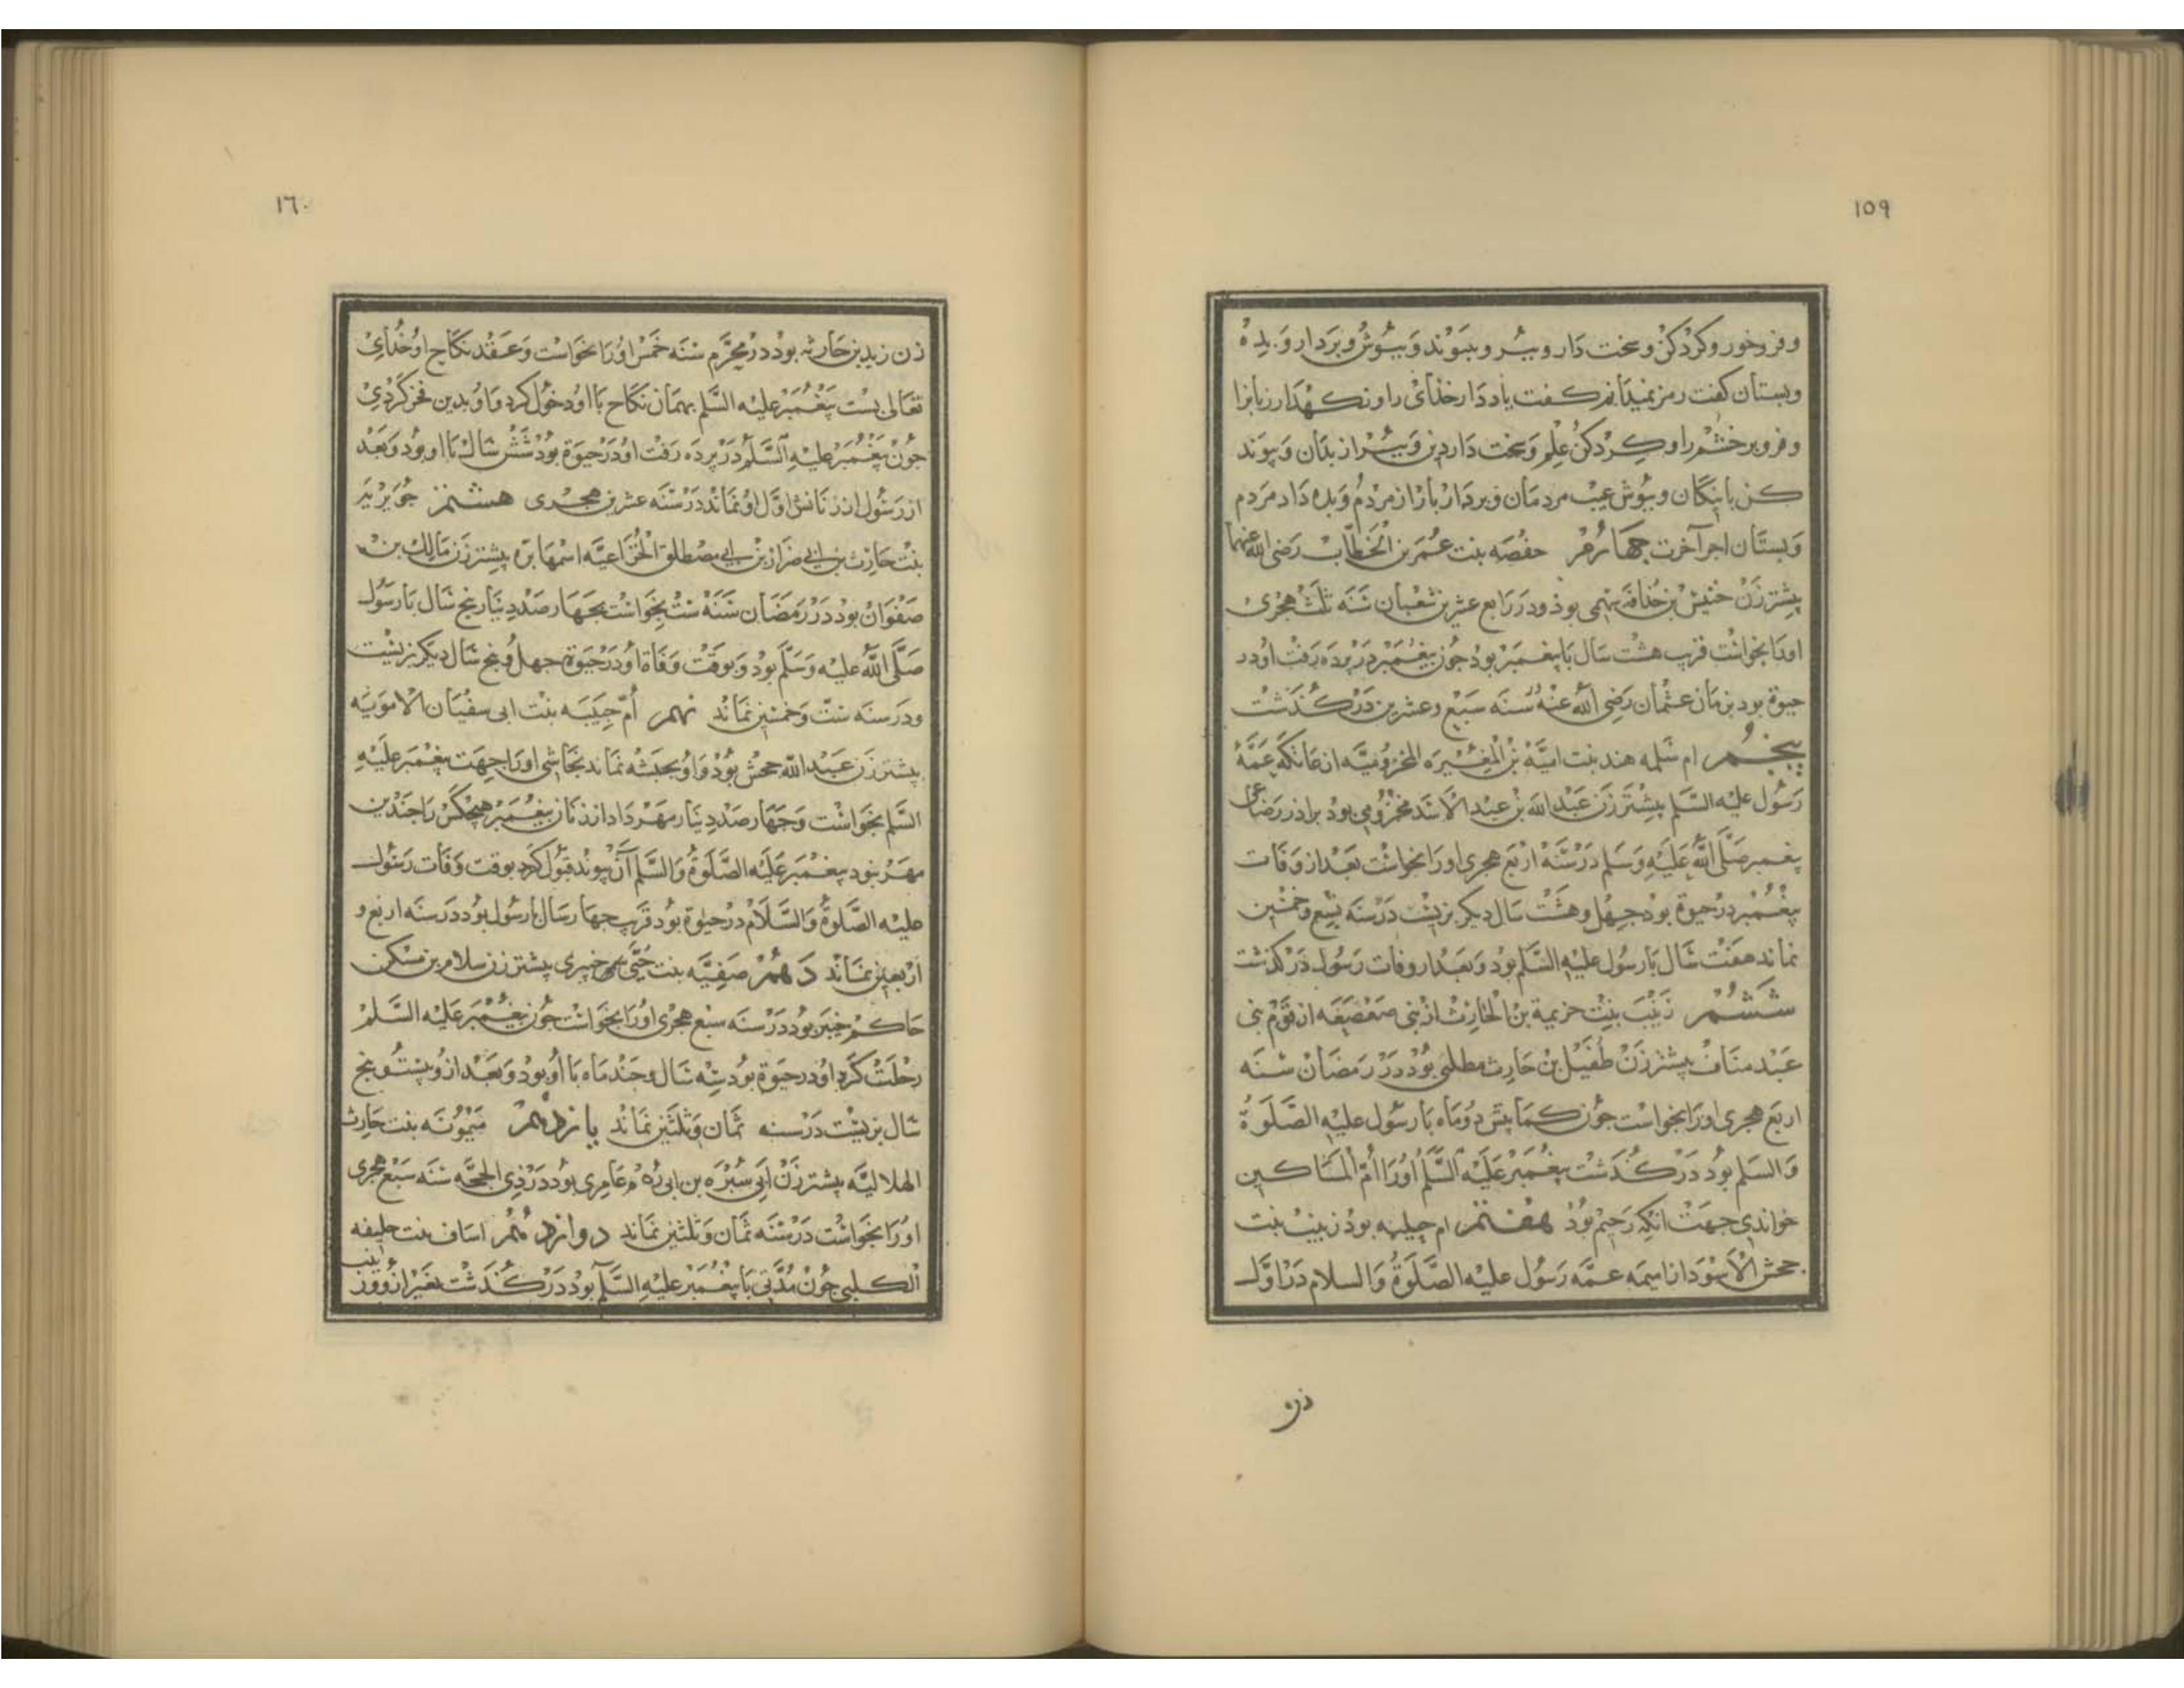 ١٥٩
وفروخور وکردکن وسخت دار وببر وبپوند وبپوش وبردار وبده
وبستان کفت رمز نمیدانم کفت یاد دار خدای را ونکهدار زبانرا
وفروبر خشم را وکردکن علم وسخت دار دین وببر از بدان وبپوند
کن با نیکان وبپوش عیب مردمان وبردار بار از مردم وبده داد مردم
وبستان اجر آخرت چهارم حفصه بنت عمر بن الخطاب رضی الله عنهما
پیشتر زن خنیس بن حذافه سهمی بوذ ودر رابع عشرین شعبان سنه ثلث هجری
اورا بخواست قرب هشت سال با پیغمبر بود جون پیغمبر در پرده رفت او در
حیوة بود بزمان عثمان رضی الله عنه سنه سبع وعشرین درکذشت
پنجم ام سلمه هند بنت امیّه بن المغیره المخزومیّه از عاتکه عمّهٔ
رسول علیه السلم پیشتر زن عبد الله بن عبد الاسد مخزومی بود براذر رضاعی
پیغمبر صلی الله علیه وسلم در سنه اربع هجری اورا بخواست بعد از وفات
پیغمبر در حیوة بود جهل وهشت سال دیکر بزیست در سنه تسع وخمسین
نماند هفت سال با رسول علیه السلم بود وبعد از وفات رسول درکذشت
ششم زینب بنت خزیمة بن الحارث از بنی صعصعه از قوم بنی
عبد مناف پیشتر زن طفیل بن حارث مطلبی بود در رمضان سنه
اربع هجری اورا بخواست جون کمابیش دو ماه با رسول علیه الصلوة
والسلم بود درکذشت پیغمبر علیه السلم اورا امّ المساکین
خواندی جهت انکه رحیم بود هفتم ام حبیبه بود زینب بنت
جحش الاسود از امیمه عمّه رسول علیه الصلوة والسلام در اوّل
زن
١٦٠
زن زید بن حارثه بود در محرّم سنه خمس اورا بخواست وعقد نکاح او خدای
تعالی بست پیغمبر علیه السلم بهمان نکاح با او دخول کرد واو بدین فخر کردی
جون پیغمبر علیه السلم در پرده رفت او در حیوة بود شش سال با او بود وبعد
از رسول از زنانش اوّل او نماند در سنه عشرین هجری هشتم جویریه
بنت حارث بن ابی ضرار بن ابی مصطلق الخزاعیّه اسمها برّه پیشتر زن مالک بن
صفوان بود در رمضان سنه ست بخواست بجهارصد دینار پنج سال با رسول
صلّی الله علیه وسلّم بود وبوقت وفاة او در حیوة جهل وپنج سال دیکر بزیست
ودر سنه ستّ وخمسین نماند نهم أمّ حبیبه بنت ابی سفیان الامویّه
پیشتر زن عبید الله جحش بود واو بحبشه نماند نجاشی اورا جهت پیغمبر علیه
السلم بخواست وجهارصد دینار مهر داد از زنان پیغمبر هیچکس را جندین
مهر نبود پیغمبر علیه الصّلوة والسّلم آن پیوند قبول کرد بوقت وفات رسول
علیه الصّلوة والسّلام در حیوة بود قرب جهار سال با رسول بود در سنه اربع و
اربعین نماند دهم صفیّه بنت حیّی خیبری پیشتر زن سلام بن مسکن
حاکم خیبر بود در سنه سبع هجری اورا بخواست جون پیغمبر علیه السلم
رحلت کرد او در حیوة بود سه سال وجند ماه با او بود وبعد ازو بیست و پنج
سال بزیست در سنه ثمان وثلثین نماند یازدهم میمونه بنت حارث
الهلالیّه پیشتر زن ابی سبره بن ابی رهم عامری بود در ذی الحجّه سنه سبع هجری
اورا بخواست در سنه ثمان وثلثین نماند دوازدهم اساف بنت خلیفه
الکلبی جون مدّتی با پیغمبر علیه السلم بود درکذشت بغیر ازو وزینب